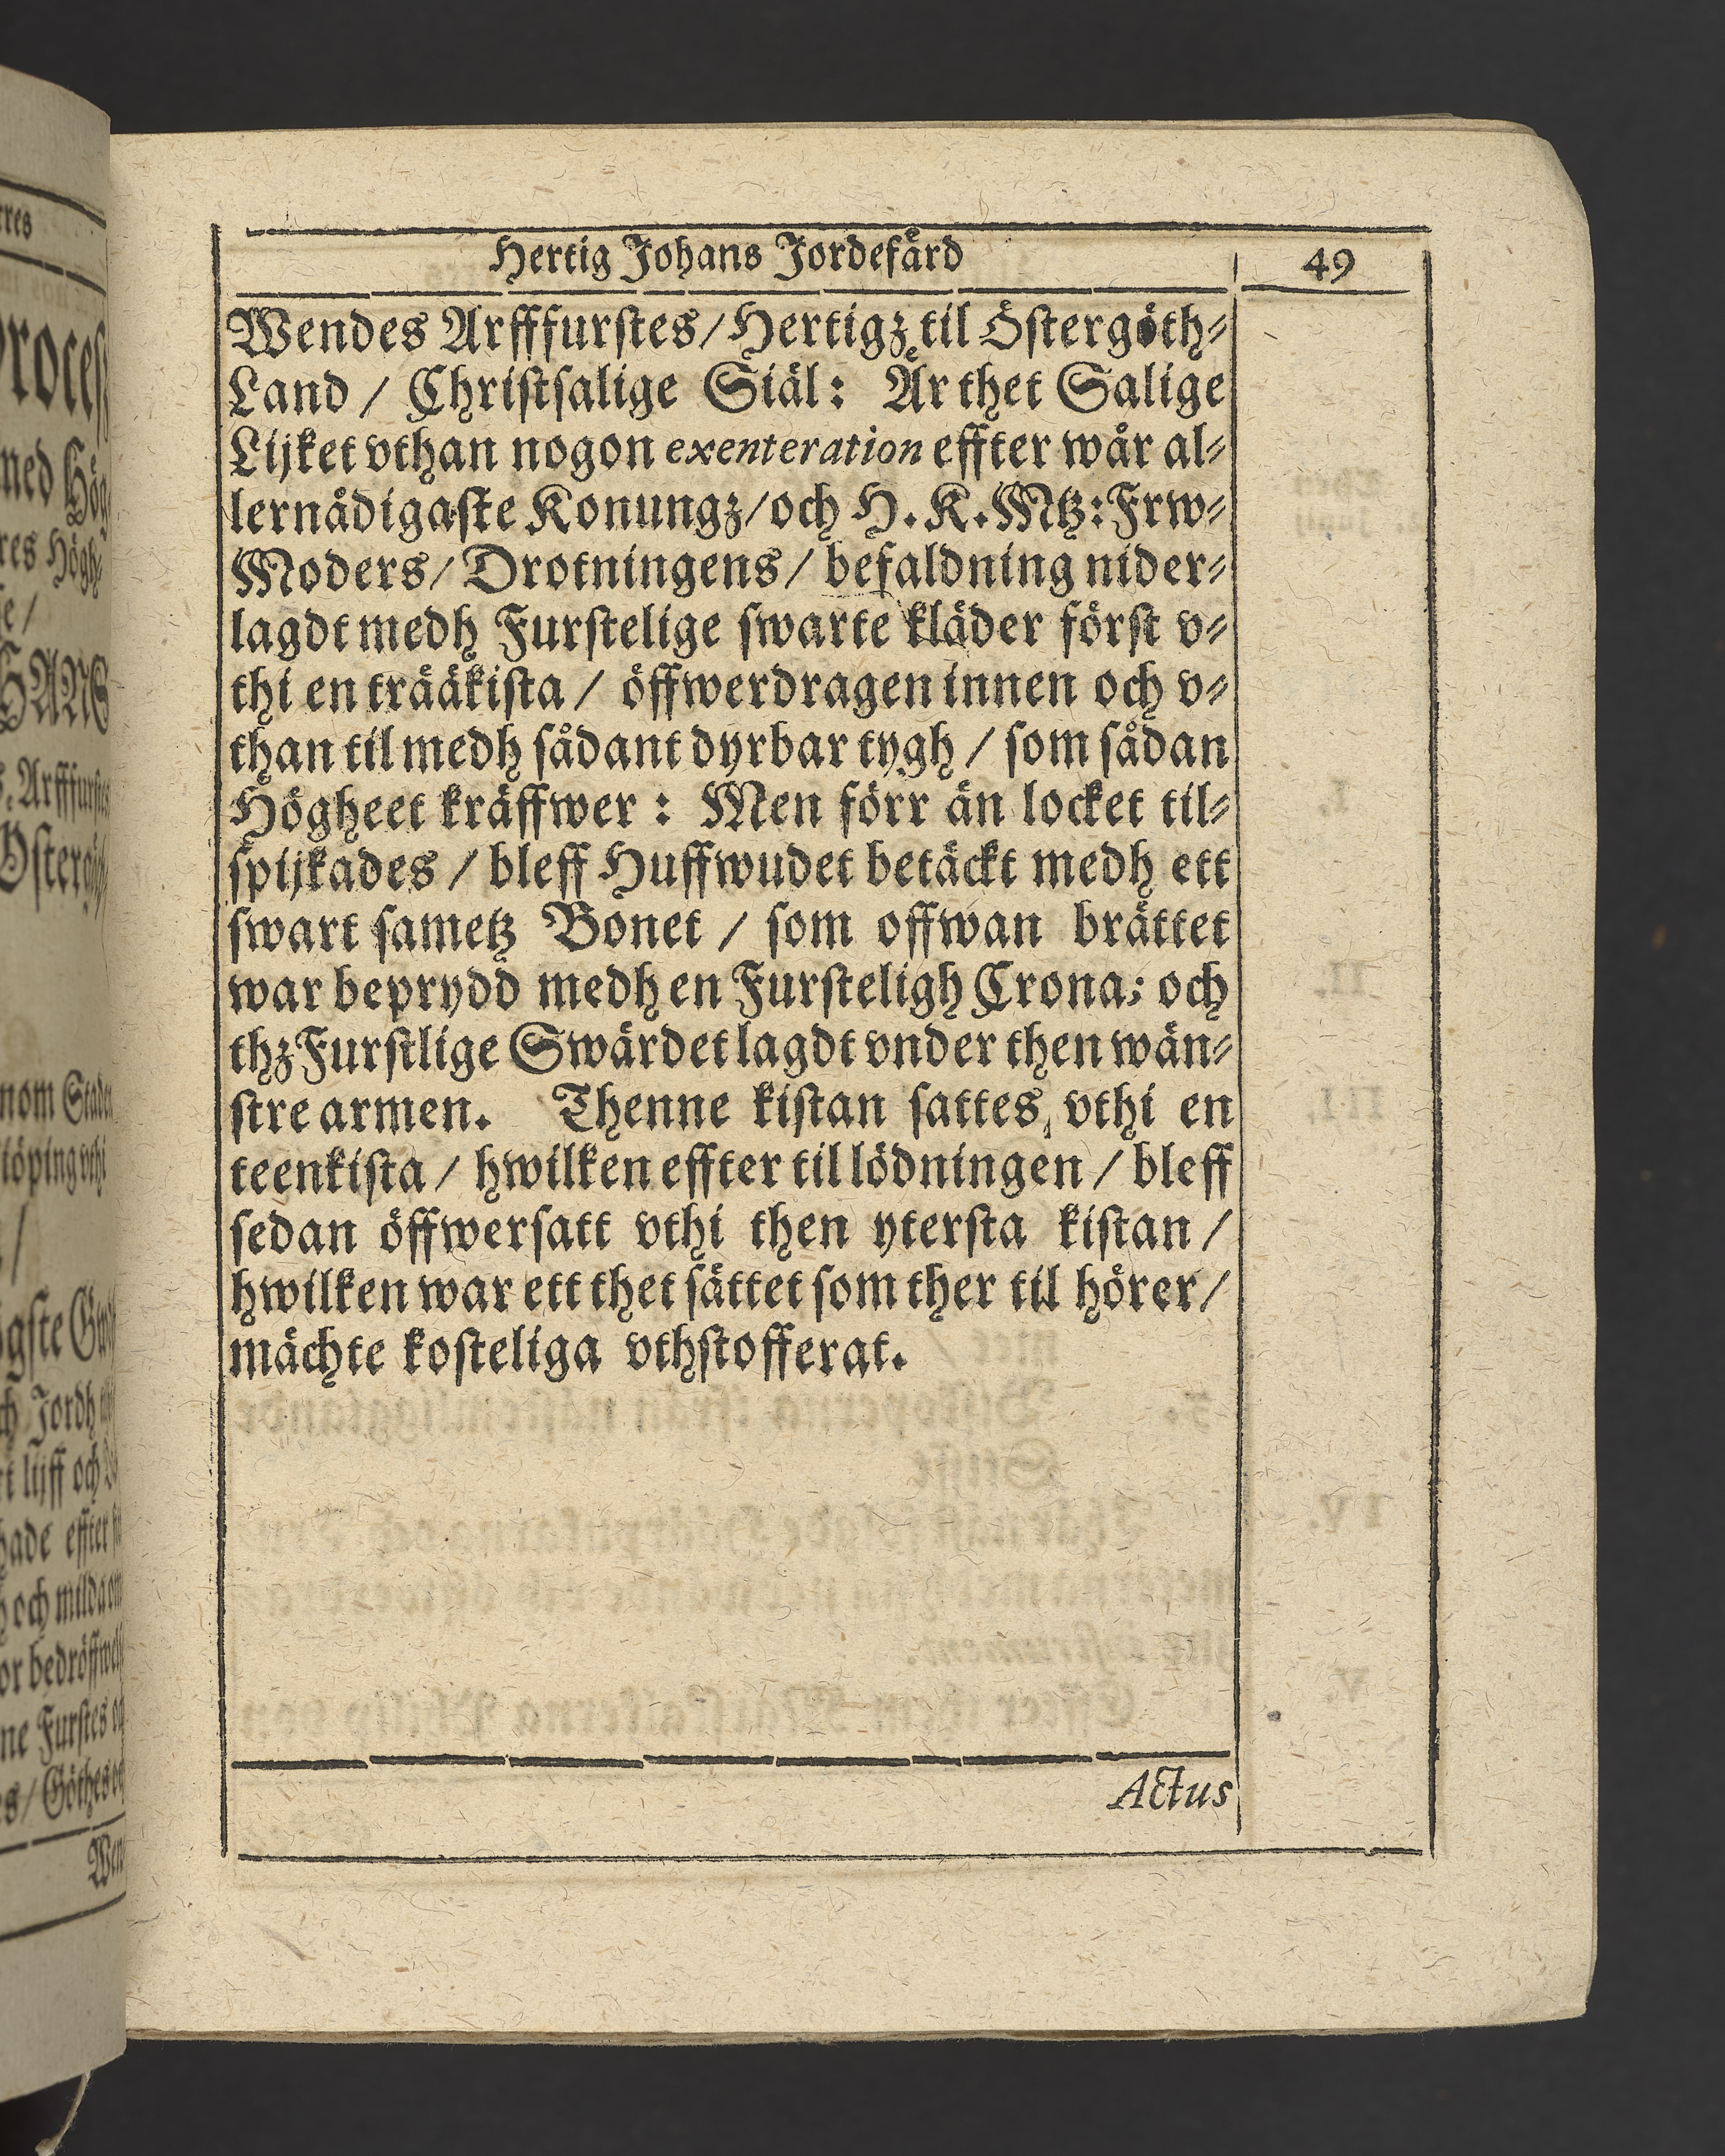 Hertig Johans Jordefärd 49
Wendes Arffſurſtes/Hertigz til Öſtergöth⸗
Land / Chriſtſalige Siäl: Är thet Salige
Lijket vthan nogon exenteration effter wår al⸗
lernådigaſte Konungz/och H.K.Mtz:Frw⸗
Moders/Drotningens/befaldning nider⸗
lagdt medh Furſtelige ſwarte kläder förſt v⸗
thi en trääkiſta / öffwerdragen innen och v⸗
than til medh ſådant dyrbar tygh / ſom ſådan
Högheet kräffwer : Men förr än locket til⸗
ſpijkades / bleff Huffwudet betäckt medh ett
ſwart ſametz Bonet / ſom offwan brättet
war beprydd medh en Furſteligh Crona; och
thz Furſtlige Swärdet lagdt vnder then wän⸗
ſtre armen. Thenne kiſtan ſattes, vthi en
teenkiſta / hwilken effter til lödningen / bleff
ſedan öffwerſatt vthi then yterſta kiſtan /
hwilken war ett thet ſättet ſom ther til hörer/
mächte koſteliga vthſtofferat.
Actus